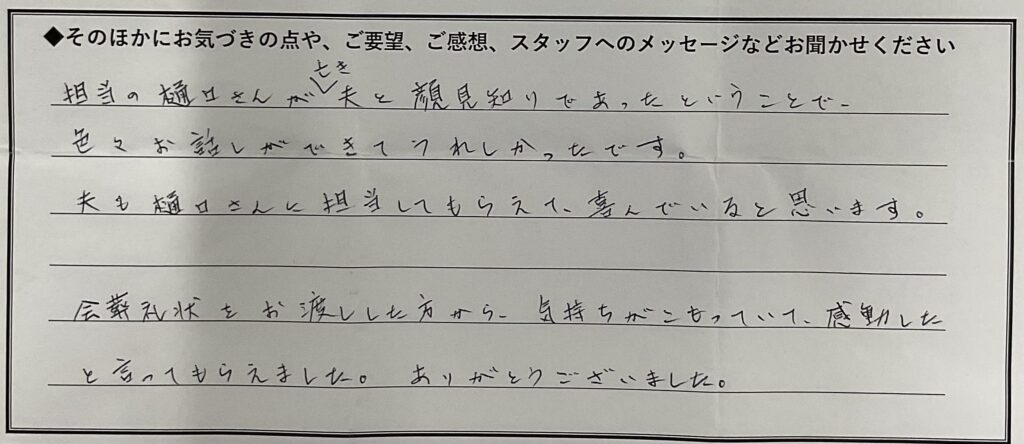 ◆そのほかにお気づきの点や、ご要望、ご感想、スタッフへのメッセージなどお聞かせください
担当の樋口さんが亡き夫と顔見知りであったということで、
色々お話しができてうれしかったです。
夫も樋口さんに担当してもらえて、喜んでいると思います。
会葬礼状をお渡しした方から、気持ちがこもっていて、感動した
と言ってもらえました。ありがとうございました。